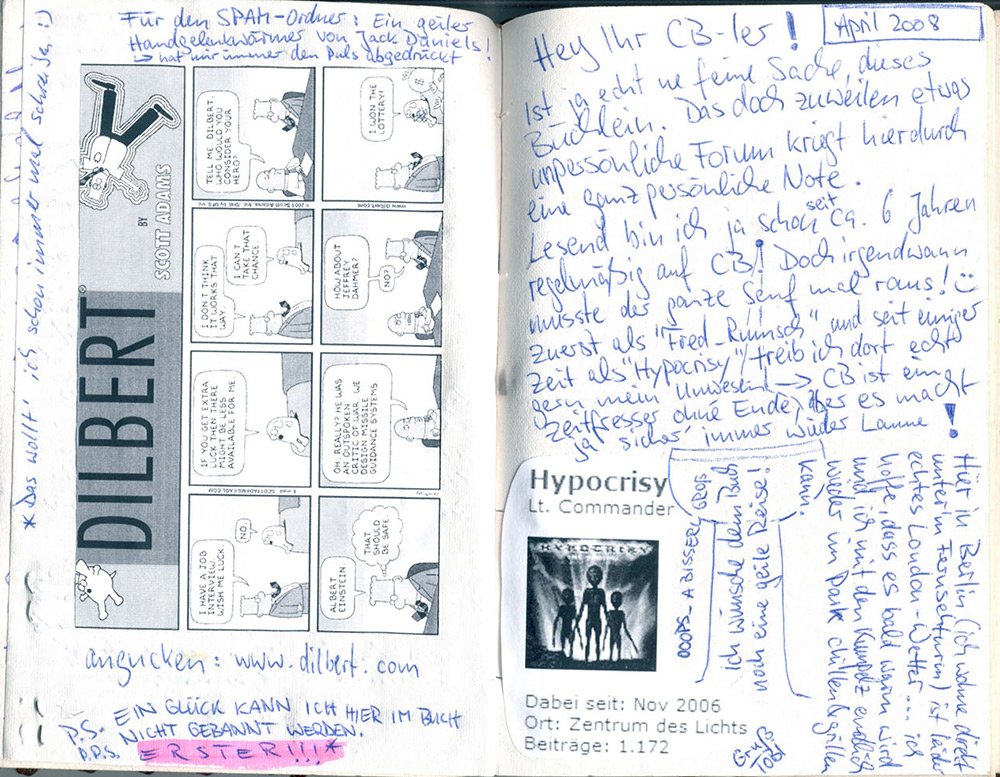 Für den SPAM-Ordner: Ein geiler
Handgelenkwärmer von Jack Daniels!
→ hat mir immer den Puls abgedrückt
* Das wollt' ich schon immer mal schreiben ;)
DILBERT®
BY
SCOTT ADAMS
I HAVE A JOB
INTERVIEW.
WISH ME LUCK
NO.
IF YOU GET EXTRA
LUCK THEN THERE
MIGHT BE LESS
AVAILABLE FOR ME.
I DON'T THINK
IT WORKS THAT
WAY.
I CAN'T
TAKE THAT
CHANCE
TELL ME DILBERT.
WHO WOULD YOU
CONSIDER YOUR
HERO?
ALBERT
EINSTEIN
THAT
SHOULD
BE SAFE
OH REALLY? HE WAS
AN OUTSPOKEN
CRITIC OF WAR. WE
DESIGN MISSILE
GUIDANCE SYSTEMS
HOW ABOUT
JEFFREY
DAHMER?
NO?
I WON THE
LOTTERY!
www.dilbert.com
angucken: www.dilbert.com
P.S. EIN GLÜCK KANN ICH HIER IM BUCH
NICHT GEBANNT WERDEN.
P.P.S. ERSTER!!!*
April 2008
Hey Ihr CB-ler!
Ist ja echt ne feine Sache, dieses
Büchlein. Das doch zuweilen etwas
unpersönliche Forum kriegt hierdurch
eine ganz persönliche Note.
Lesend bin ich ja schon seit ca. 6 Jahren
regelmäßig auf CB! Doch irgendwann
musste der ganze Senf mal raus! :)
Zuerst als "Fred_Rümsch" und seit einiger
Zeit als "Hypocrisy" treib ich dort echt
gern mein Unwesen → CB ist ein
Zeitfresser ohne Ende, aber es macht
ja sicher immer wieder Laune!
Hypocrisy
Lt. Commander
HYPOCRISY
Dabei seit: Nov 2006
Ort: Zentrum des Lichts
Beiträge: 1.172
Hier in Berlin (ich wohne direkt
unter'm Fernsehturm) ist leider
echtes London-Wetter... ich
hoffe, dass es bald warm wird
und ich mit den Kumpelz endlich
wieder im Park chillen & grillen
kann.
ich wünsche dem Buch
noch eine geile Reise!
OOOPS - A BISSERL GROß